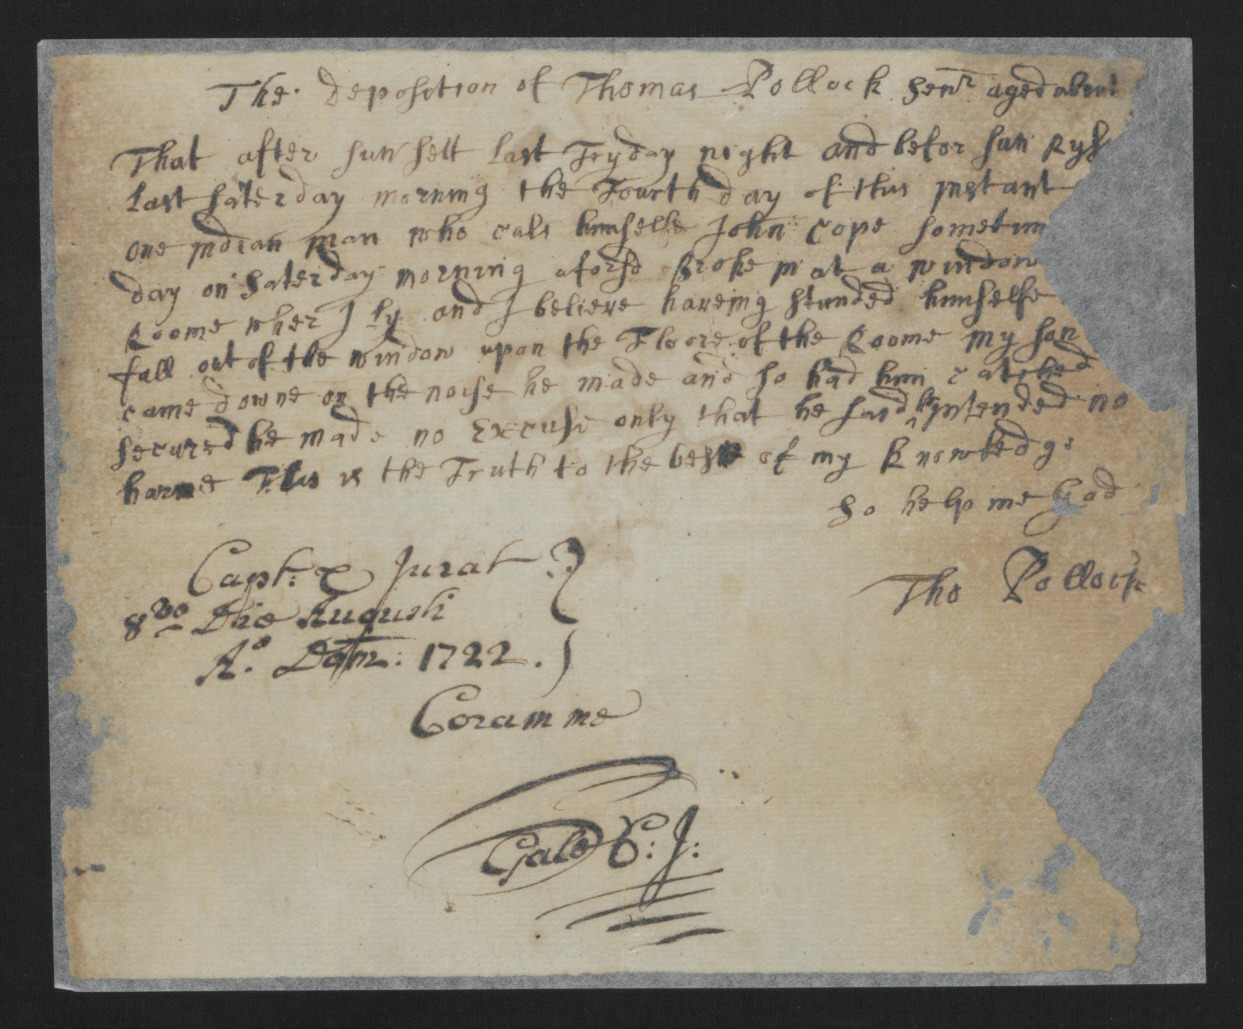 The deposition of Thomas Pollock Senr aged about
That after sun sett last Fryday night and befor sun Rys
last saterday morning the Fourth day of this instant
one indian man who cals himselfe John Cope sometim
day on saterday morning aforsd broke in at a window
Roome wher I ly and I believe haveing stunded himselfe
fall out of the window upon the Floore of the Roome my son
came downe on the noise he made and so had him catched
secured he made no Excuse only that he said he intended no
harme This is the Truth to the best of my knowledge
so help me God
Tho Pollock
Capt: & Jurat
8vo Die Augusti
Ao Dom: 1722.
Coram me
C Gale C: J: